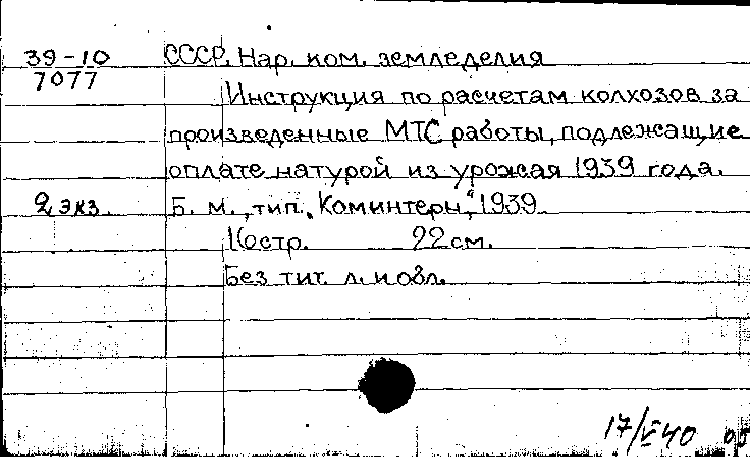 39-10 СССР. Нар. ком. земледелия
7077
Инструкция по расчетам колхозов за
произведенные МТС работы, подлежащие
оплате натурой из урожая 1939 года.
2 экз. Б. м., тип. „Коминтерн“, 1939.
16 стр. 22 см.
Без тит. л. и обл.
17/VI 40